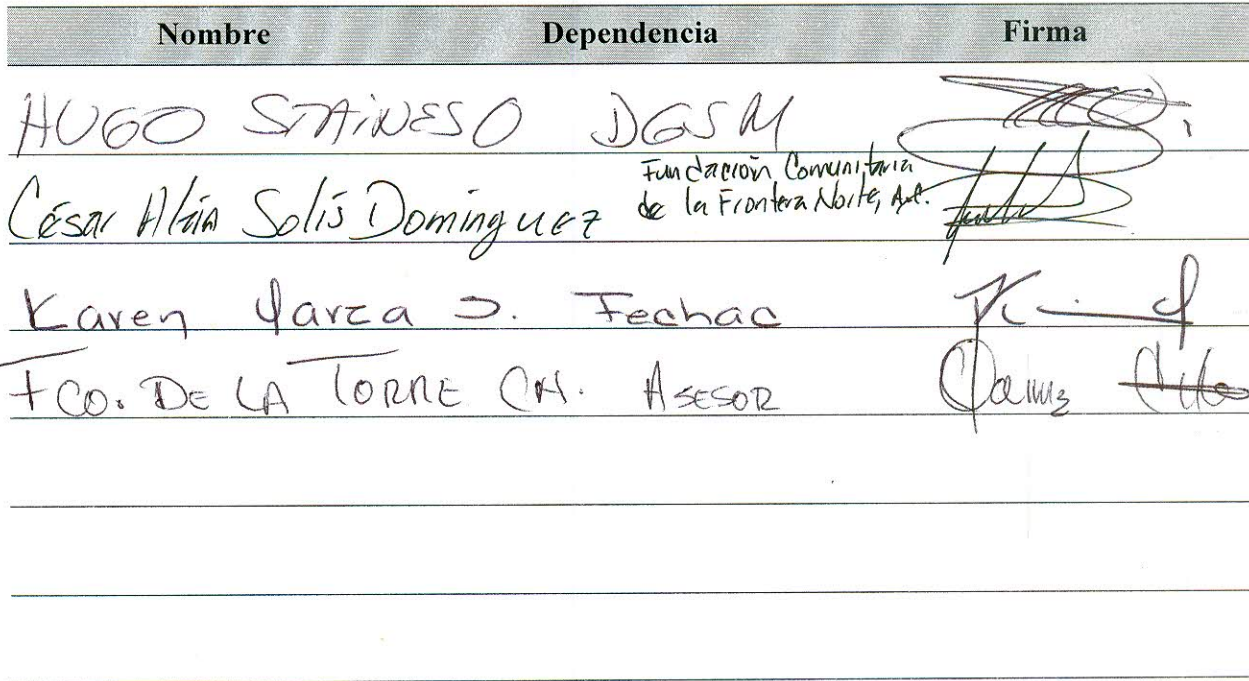 Nombre Dependencia Firma
HUGO STAINES O DGSM
César Alán Solís Domínguez Fundación Comunitaria
de la Frontera Norte, A.C.
Karen Yarza S. Fechac
Fco. DE LA TORRE CH. ASESOR